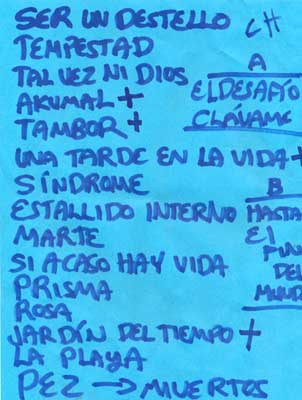 SER UN DESTELLO
TEMPESTAD
TAL VEZ NI DIOS
AKUMAL +
TAMBOR +
UNA TARDE EN LA VIDA +
SÍNDROME
ESTALLIDO INTERNO
MARTE
SI ACASO HAY VIDA
PRISMA
ROSA
JARDÍN DEL TIEMPO +
LA PLAYA
PEZ → MUERTOS
LH
A
EL DESAFÍO
CLÁVAME
B
HASTA
El
DEL
MUND